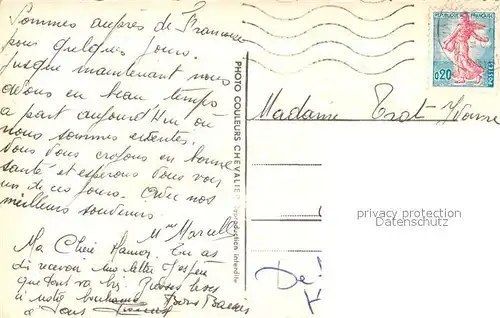 Sommes auprès de Francine
pour quelques jours.
jusque maintenant nous
avons eu beau temps
a part aujourd'hui où
nous sommes
Nous vous croyons en bonne
santé et espérons vous voir
un de ces jours. Avec nos
meilleurs souvenirs.
Mme Marcelle
Ma Chère Mamor. Tu as
dû recevoir ma lettre J'espère
que tout va bien. Grosses bises
à notre bonhomme. Bons Baisers
à tous
PHOTO COULEURS CHEVALIER reproduction interdite
REPUBLIQUE FRANÇAISE
0,20
POSTES
Madame Trat Yvonne
privacy protection
Datenschutz
De